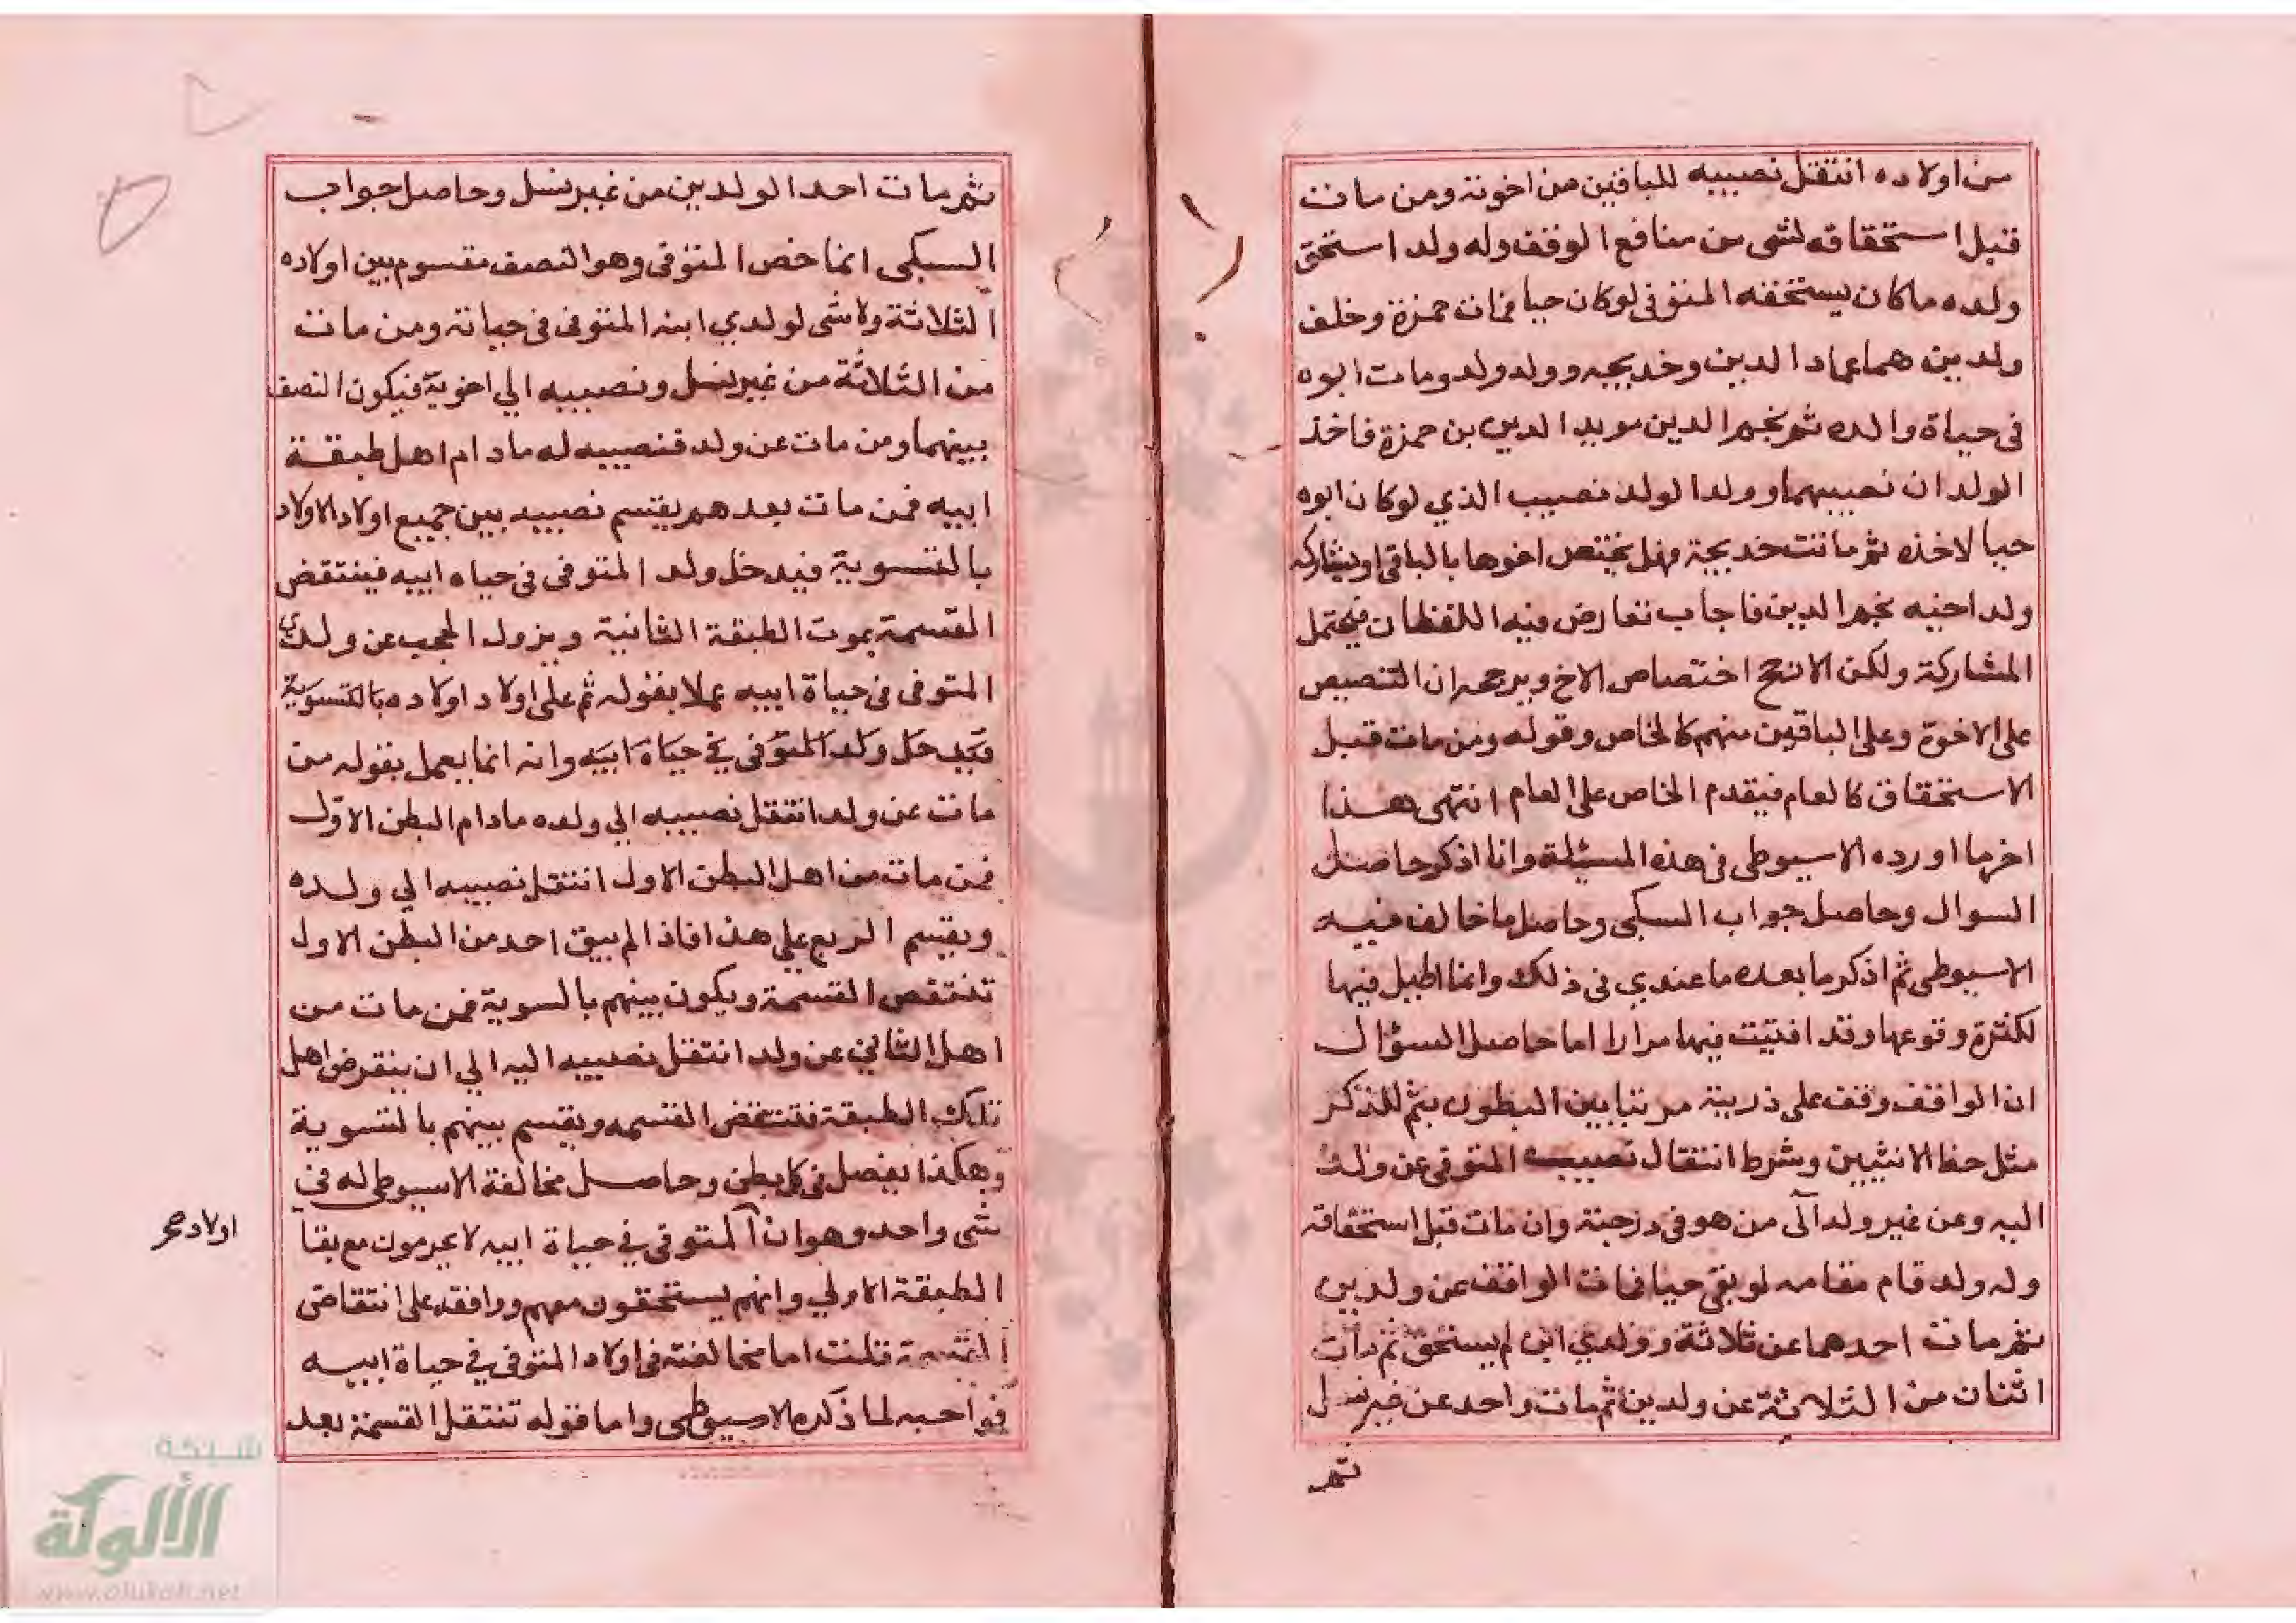 من اولاده انتقل نصيبه للباقين من اخوته ومن مات
قبل استحقاقه لشى من منافع الوقف وله ولد استحق
ولده ماكان يستحقه المتوفى لوكان حيا فمات حمزة وخلف
ولدين هما عماد الدين وخديجه وولد ولد ومات ابوه
فى حياة والده ثم نجم الدين مويد الدين بن حمزة فاخذ
الولدان نصيبهما وولد الولد نصيب الذي لوكان ابوه
حيا لاخذه ثم ماتت خديجة فهل يختص اخوها بالباقى او يشاركه
ولد اخيه نجم الدين فاجاب تعارض فيه اللفظان فيحتمل
المشاركة ولكن الارجح اختصاص الاخ ويرجحه ان التنصيص
على الاخوة وعلى الباقين منهم كالخاص وقوله ومن مات قبل
الاستحقاق كالعام فيقدم الخاص على العام انتهى هذا
اخر ما اورده الاسيوطى فى هذه المسئلة وانا اذكر حاصل
السوال وحاصل جواب السبكى وحاصل ما خالف فيه
الاسيوطى ثم اذكر ما بعده ما عندي فى ذلك وانما اطيل فيها
لكثرة وقوعها وقد افتيت فيها مرارا اما حاصل السؤال
ان الواقف وقف على ذريته مرتبا بين البطون بثم للذكر
مثل حظ الانثيين وشرط انتقال نصيب المتوفى عن ولد
اليه وعن غير ولد الى من هو فى درجته وان مات قبل استحقاقه
وله ولد قام مقامه لو بقى حيا فمات الواقف عن ولدين
ثم مات احدهما عن ثلاثة وولدي ابن لم يستحق ثم مات
اثنان من الثلاثة عن ولدين ثم مات واحد عن غير نسل
ثم
ثم مات احد الولدين من غير نسل وحاصل جواب
السبكى انما خص المتوفى وهو النصف مقسوم بين اولاده
الثلاثة ولا شى لولدي ابنه المتوفى فى حياته ومن مات
من الثلاثة من غير نسل ونصيبه الي اخويه فيكون النصف
بينهما ومن مات عن ولد فنصيبه له ما دام اهل طبقة
ابيه فمن مات بعدهم يقتسم نصيبه بين جميع اولاد الاولاد
بالتسوية فيدخل ولد المتوفى فى حياه ابيه فينتقض
القسمة بموت الطبقة الثانية ويزول الحجب عن ولدي
المتوفى فى حياة ابيه عملا بقوله ثم على اولاد اولاده بالتسوية
فيدخل ولد المتوفى في حياة ابيه وانه انما يعمل بقوله من
مات عن ولد انتقل نصيبه الي ولده مادام البطن الاول
فمن مات من اهل البطن الاول انتقل نصيبه الي ولده
ويقسم الريع علي هذا فاذا لم يبق احد من البطن الاول
تنتقض القسمة ويكون بينهم بالسوية فمن مات من
اهل الثاني عن ولد انتقل نصيبه اليه الي ان ينقرض اهل
تلك الطبقة فتنتقض القسمه ويقسم بينهم بالتسوية
وهكذا يفصل فى كل بطن وحاصل مخالفة الاسيوطى له في
شى واحد وهو ان المتوفى في حياة ابيه لا يحرمون مع بقا
اولاد صح
الطبقة الاولي وانهم يستحقون معهم ووافقه على انتقاض
القسمة قلت اما مخالفته فى اولاد المتوفى في حياة ابيه
فواجبه لما ذكره الاسيوطى واما قوله تنتقل القسمة بعد
شبكة
الألوكة
www.alukah.net